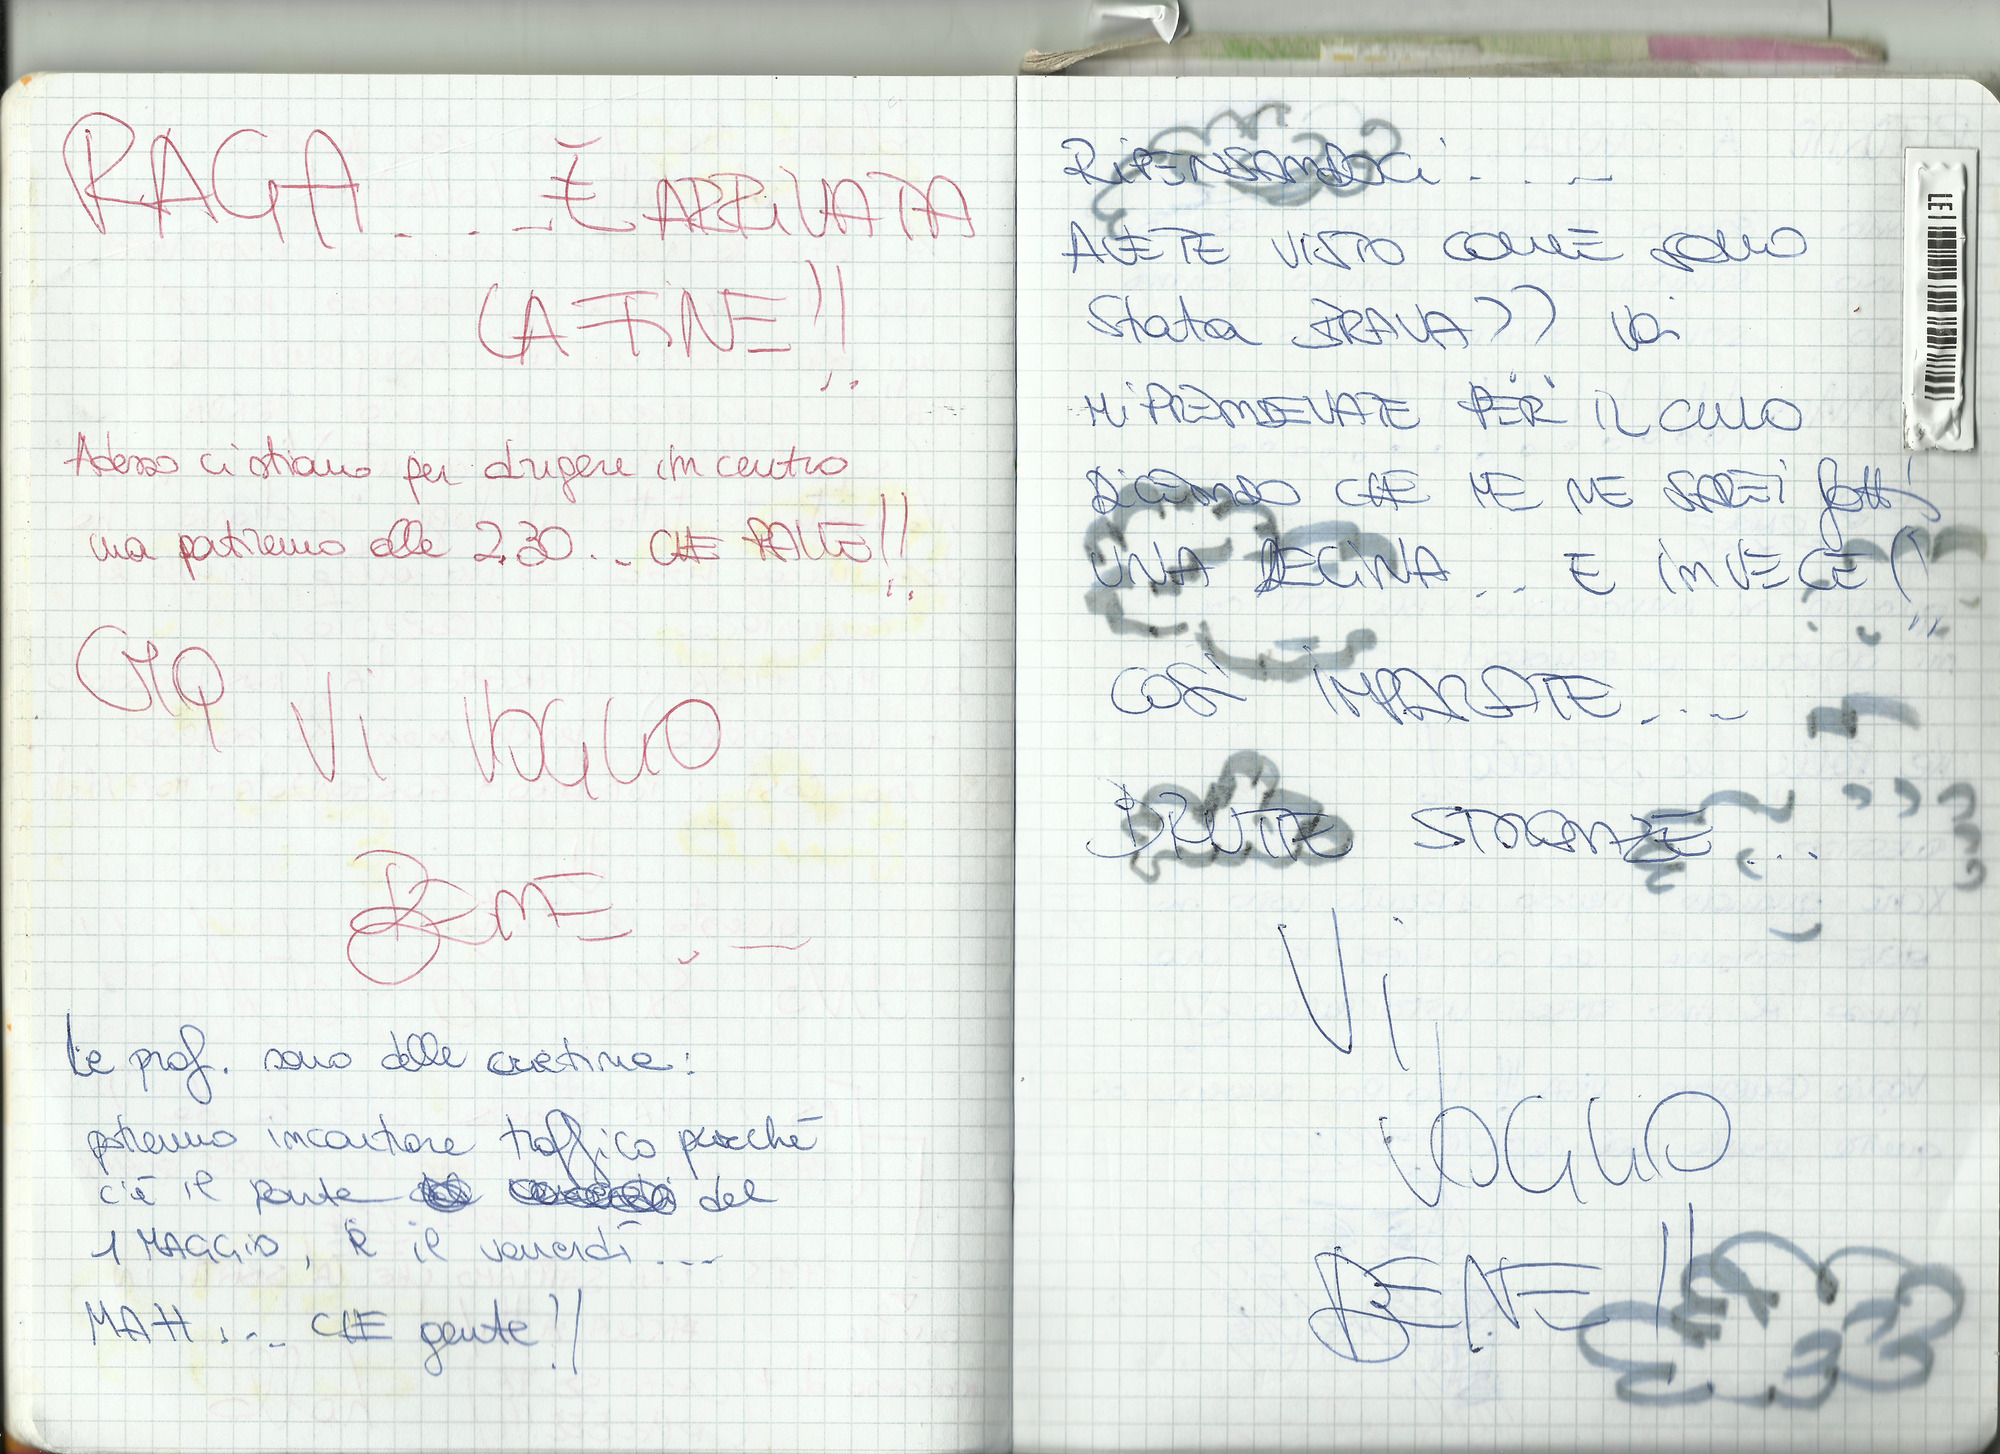 RAGA... È ARRIVATA
LA FINE!!
Adesso ci stiamo per dirigere in centro
ma partiremo alle 2.30... CHE PALLE!!
CMQ
Vi VOGLIO
BENE...
Le prof. sono delle cretine:
potremo incontrare traffico perché
c'è il ponte del
1 MAGGIO, è il venerdì...
MAH... CHE gente!!
RiPENSANDOCi...
AVETE VISTO COME SONO
Stata BRAVA?? Voi
Mi PRENDEVATE PER IL CULO
DICENDO CHE ME NE SAREI fatti
UNA DECINA... E INVECE!!
COSÌ IMPARATE...
BRUTTE STRONZE...
Vi
VOGLIO
BENE!!
LEI